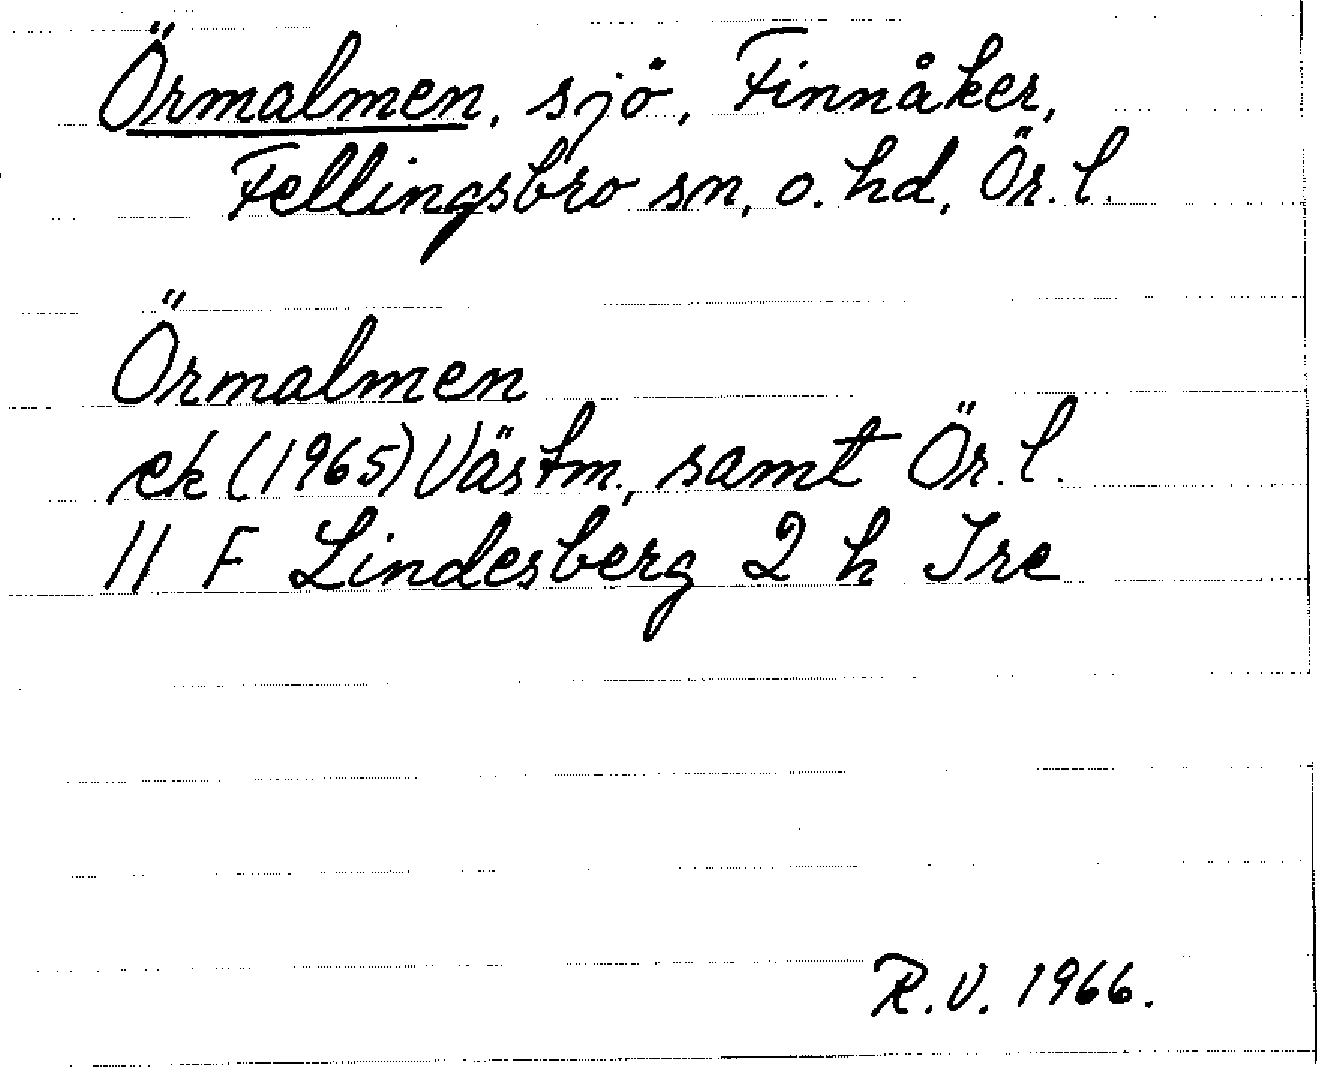 Örmalmen, sjö, Finnåker,
Fellingsbro sn, o. hd, Ör. l.
Örmalmen
ek (1965) Västm., samt Ör. l.
11 F Lindesberg 2 h Ire
R.V. 1966.